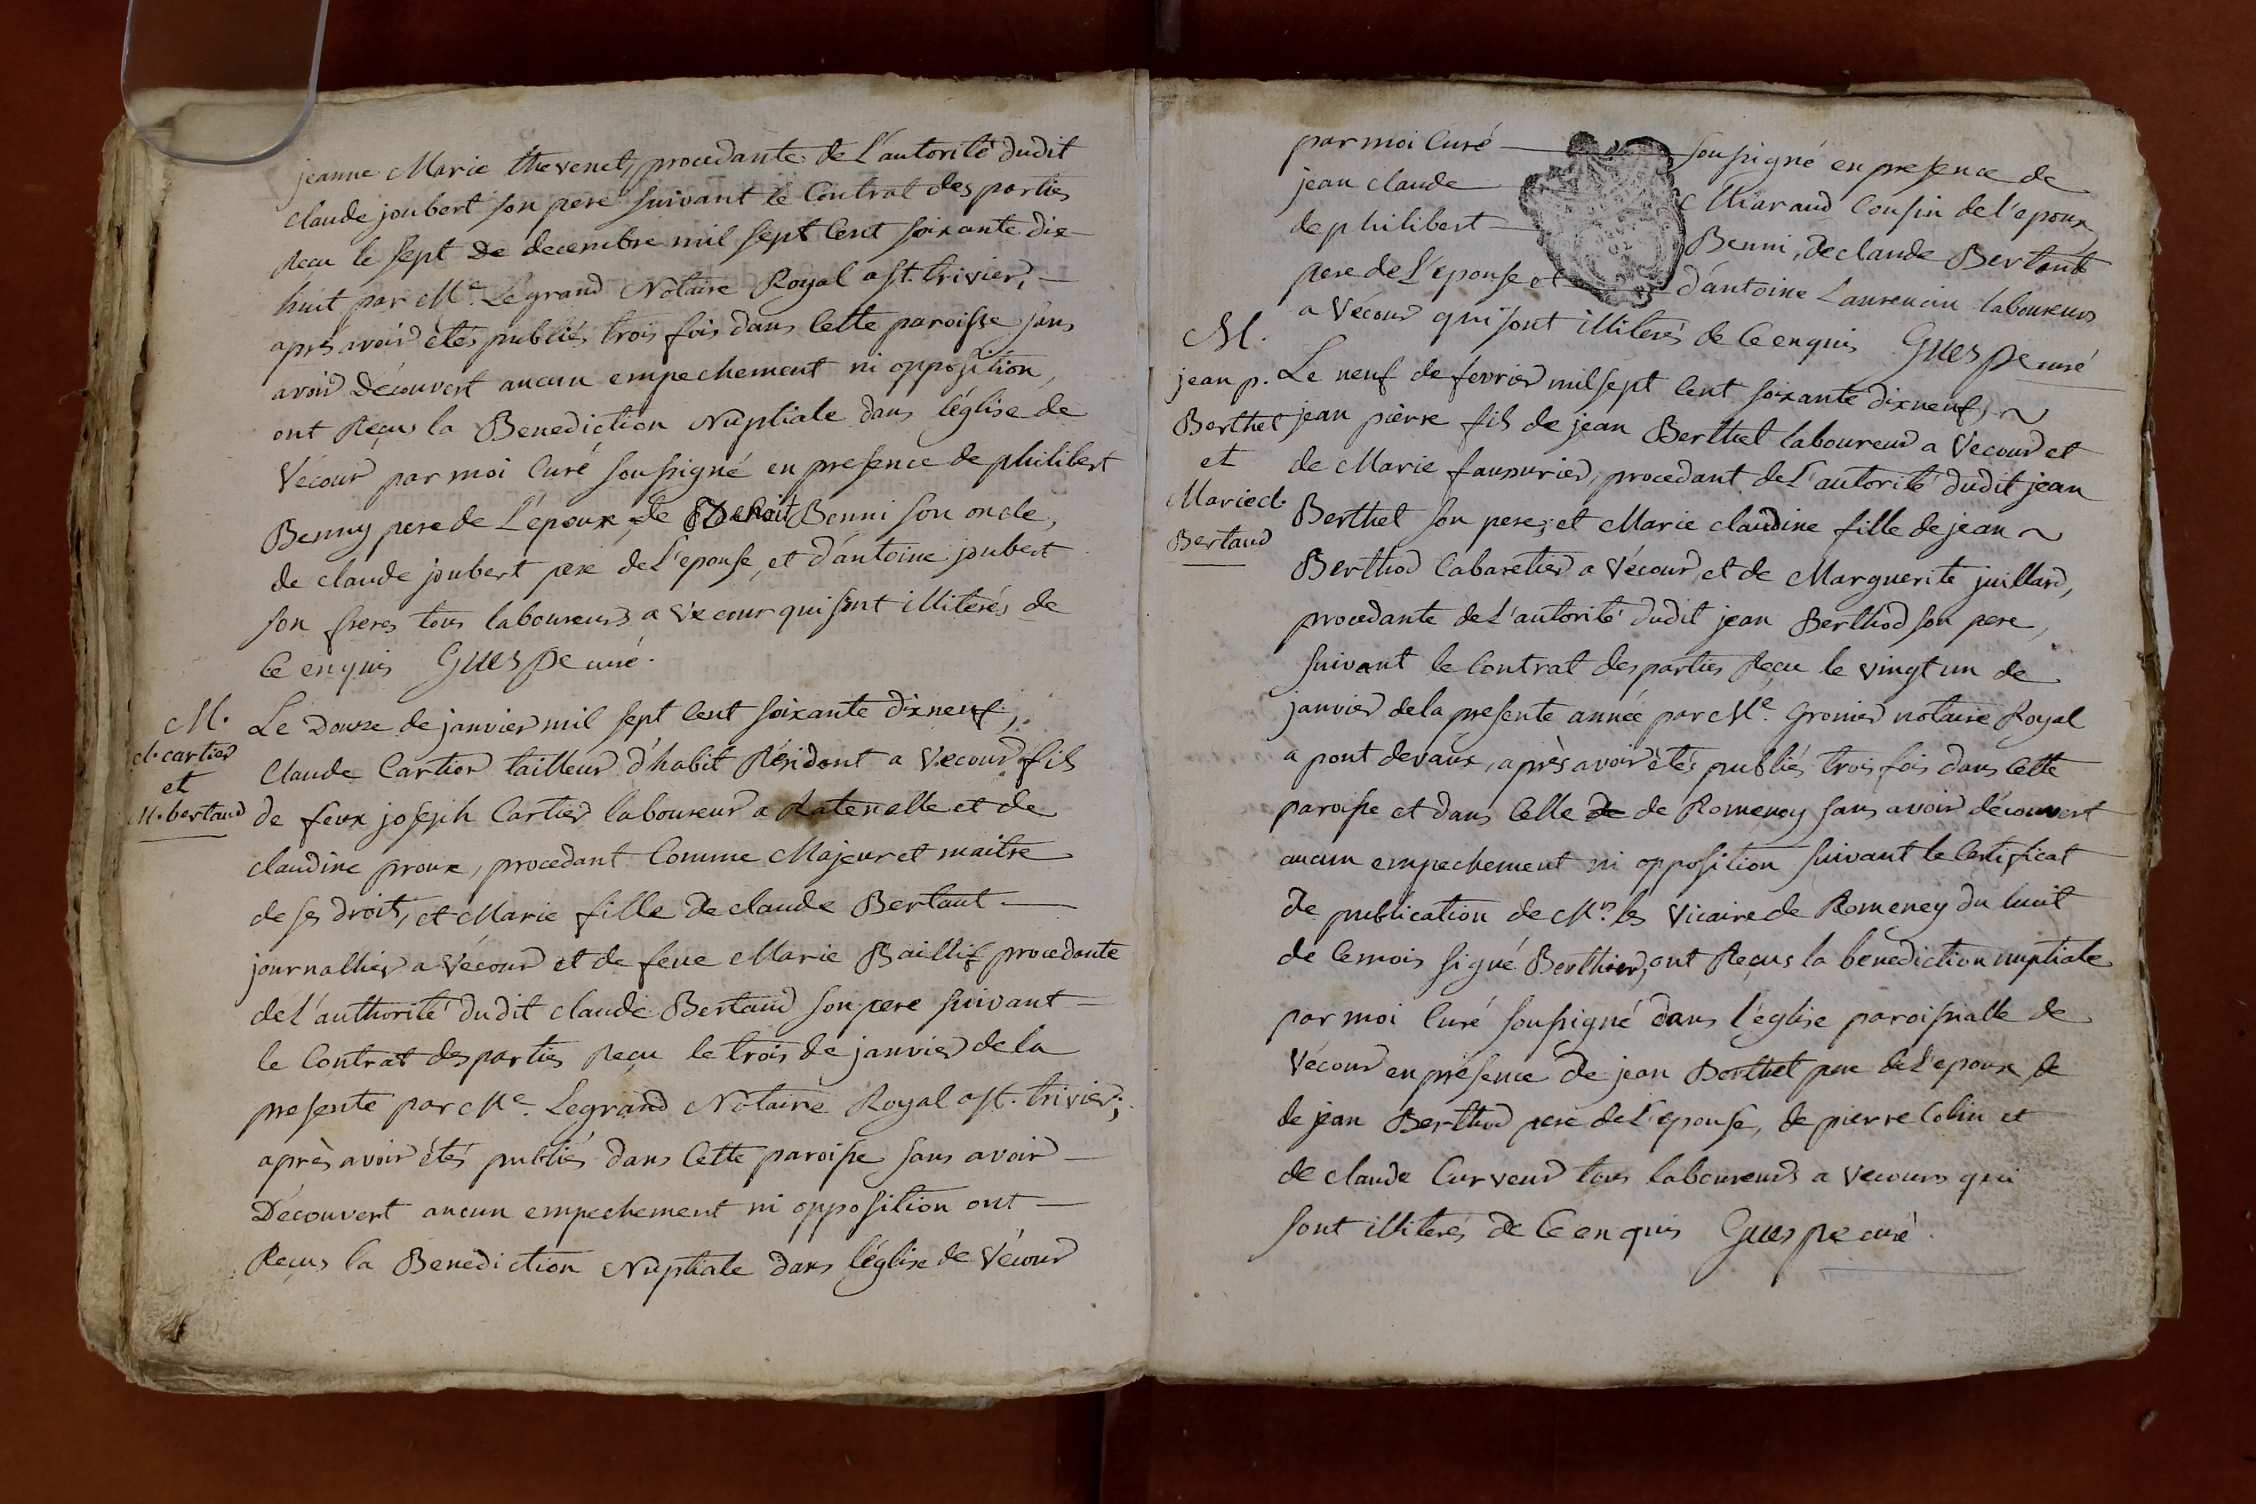 jeanne Marie thevenet, procedante de L'autorité dudit
claude joubert son pere suivant le Contrat des parties
Reçu le sept de decembre mil sept Cent soixante dix
huit par Me. Legrand Notaire Royal a St. trivier,
après avoir étés publiés trois fois dans Cette paroisse sans
avoir Découvert aucun empechement ni opposition,
ont Reçus la Benediction Nuptiale dans l'église de
Vécour par moi Curé soussigné en presence de philibert
Benny pere de L'époux, de Benoit Benni son oncle,
de claude joubert pere de L'epouse, et d'antoine joubert
son freres tous laboureurs a Vécour qui sont illiterés de
Ce enquis Guespe curé.
M.
cl. cartier
et
M. bertaud
Le Douze de janvier mil sept Cent soixante dixneuf,
Claude Cartier tailleur d'habit Résidant a Vecour fils
de feux joseph Cartier laboureur a Ratenelle et de
claudine proux, procedant Comme Majeur et maitre
de ses droits, et Marie fille de claude Bertaut
journallier a Vécour et de feue Marie Baillif procedante
de L'authorité dudit claude Bertaud son pere suivant
le Contrat des parties Reçu le trois de janvier de la
presente par Me. Legrand Notaire Royal a St. trivier;
après avoir étés publiés dans Cette paroisse sans avoir
Découvert aucun empechement ni opposition ont
Reçus la Benediction Nuptiale dans l'église de Vécour
par moi Curé soussigné en presence de
jean claude Maraud Cousin de l'epoux,
de philibert Benni, de claude Bertaud
pere de L'epouse et d'antoine Laurencin laboureurs
a Vécour qui sont illiterés de Ce enquis Guespe curé
M.
jean p.
Berthet
et
Marie cl.
Bertaud
Le neuf de fevrier mil sept Cent soixante dixneuf,
jean pierre fils de jean Berthet laboureur a Vecour et
de Marie procedant de L'autorité dudit jean
Berthet son pere; et Marie claudine fille de jean
Berthod Cabaretier a Vécour et de Marguerite juillard,
procedante de L'autorité dudit jean Berthod son pere,
suivant le Contrat des parties Reçu le vingt un de
janvier de la presente année par Me. Gromier notaire Royal
a pont devaux, après avoir étés publiés trois fois dans Cette
paroisse et dans Celle de de Romeney sans avoir découvert
aucun empechement ni opposition suivant le Certificat
de publication de Mrs. les Vicaire de Romeney du huit
de Ce mois signé Berthier, ont Reçus la benediction nuptiale
par moi Curé soussigné dans l'église paroissialle de
Vécour en présence de jean Berthet pere de L'epoux de
de jean Berthod pere de L'epouse, de pierre Colin et
de claude Curveur tous laboureurs a Vecours qui
sont illiterés de Ce enquis Guespe curé.